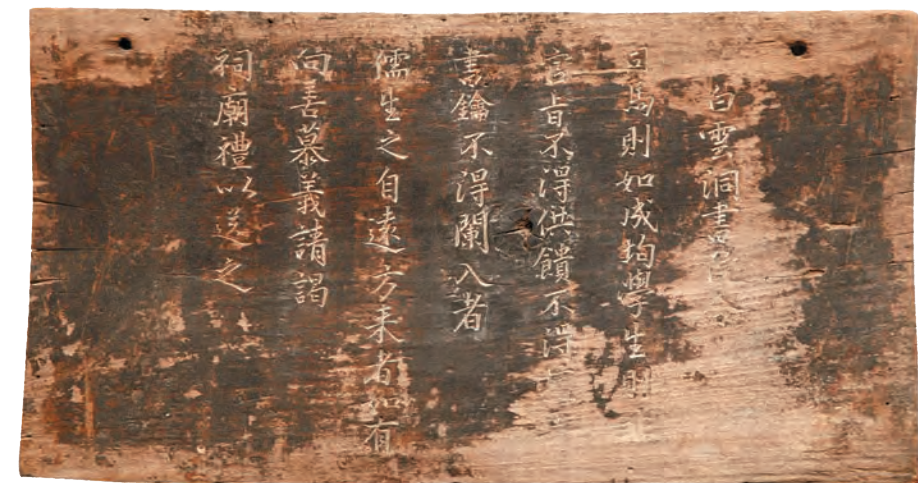 白雲洞書院
司馬則如成鈞學生則
官旨不得供饋不得
書鑰不得闌入者
儒生之自遠方来者如有
向善慕義請謁
祠廟禮以送之